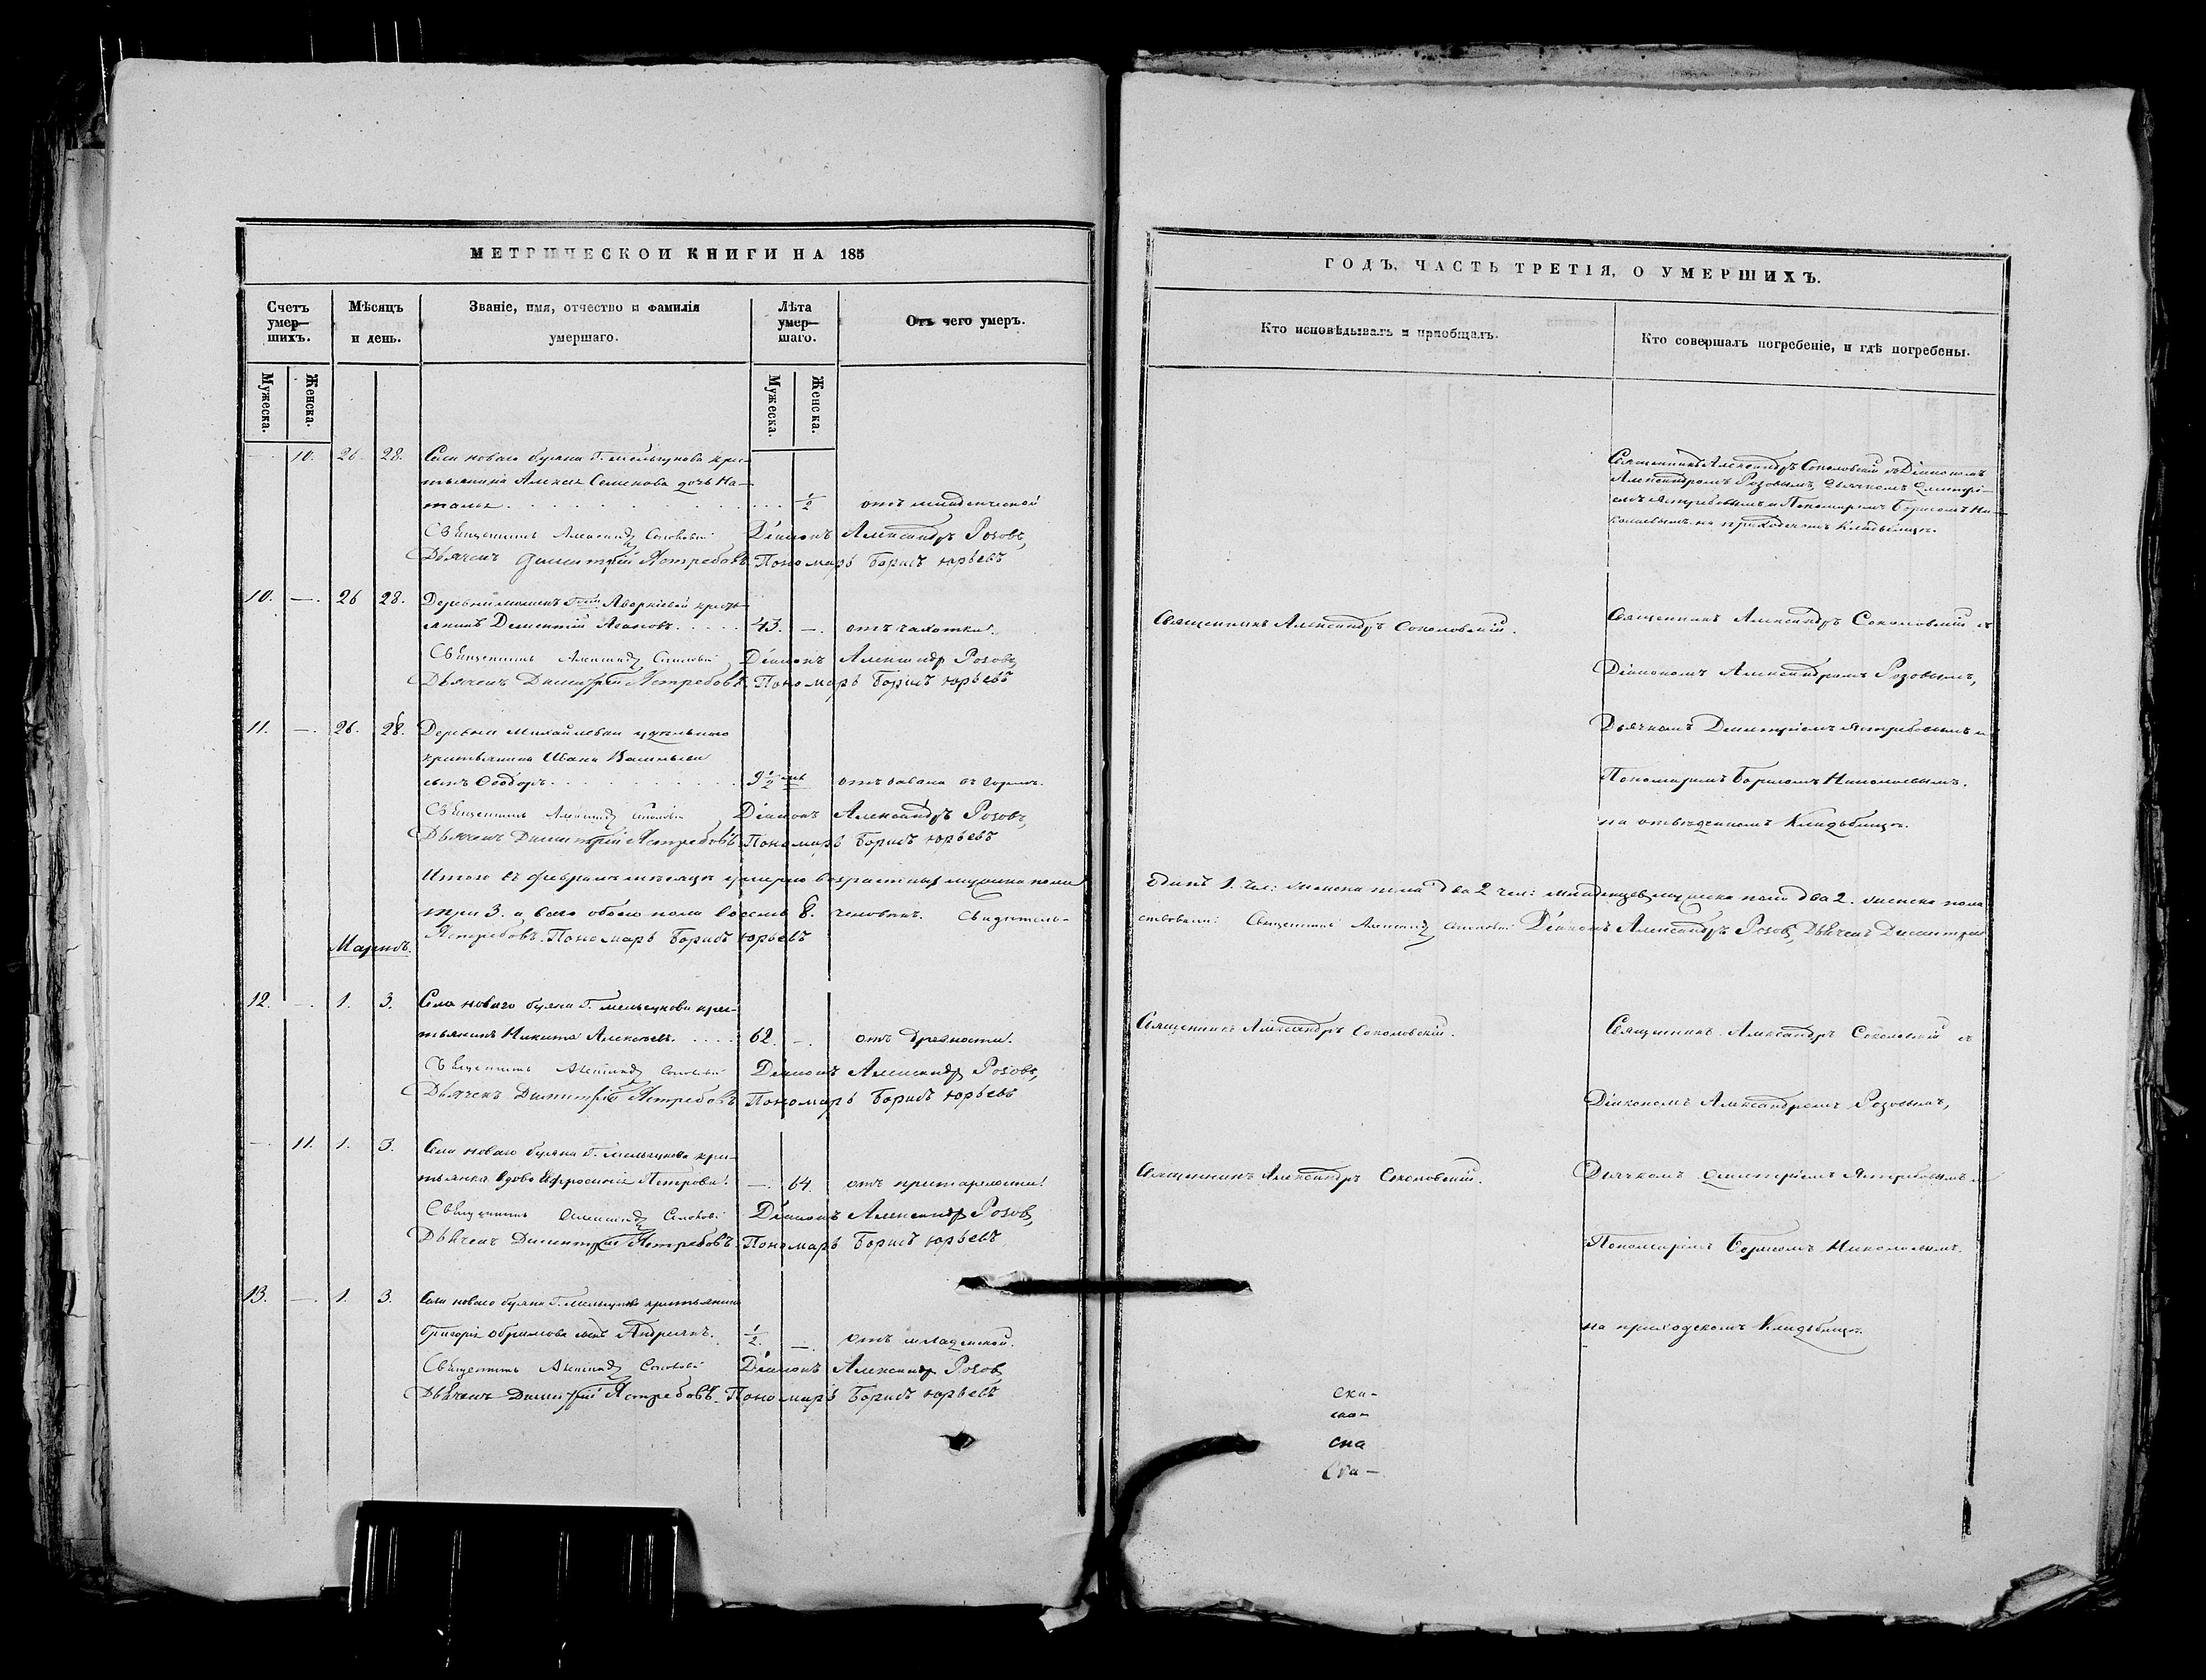 МЕТРИЧЕСКОЙ КНИГИ НА 185
Счетъ умер—шихъ.
Мѣсяцъ и день.
Званіе, имя, отчество и фамилія умершаго.
Лѣта умер—шаго.
Отъ чего умеръ.
Мужеска.
Женска.
Мужеска.
Женска.
— 10. 26 28. Села новаго буяна Г. Мельгунова кре-
стьянина Алексея Семенова дочь На-
талья . . . 1/2 отъ младенческой
Священникъ Александръ Соколовскій Діаконъ Александръ Розовъ,
Дьячекъ Димитрій Ястребовъ. Пономарь Борисъ Юрьевъ
10. —. 26 28. Деревни Г-жи Аверкіевой кресть-
янинъ Дементій . . . 43. —. отъ чахотки.
Священникъ Александръ Соколовскій Діаконъ Александръ Розовъ,
Дьячекъ Димитрій Ястребовъ. Пономарь Борисъ Юрьевъ
11. —. 26. 28. Деревни Михайловки удельнаго
крестьянина Ивана Васильева
сынъ Ѳеодоръ . . . 9 1/2 отъ въ горле.
Священникъ Александръ Соколовскій Діаконъ Александръ Розовъ,
Дьячекъ Димитрій Ястребовъ. Пономарь Борисъ Юрьевъ
Итого въ Февралѣ мѣсяцѣ умерло возрастныхъ мужеска пола
три 3. а всего обоего пола восемь 8. человѣкъ. Свидѣтель-
Ястребовъ. Пономарь Борисъ Юрьевъ
Мартъ.
12. —. 1. 3. Села новаго буяна Г. Мельгунова кре-
стьянинъ Никита Алексѣевъ. . . . 62. —. отъ древности.
Священникъ Александръ Соколовскій Діаконъ Александръ Розовъ,
Дьячекъ Димитрій Ястребовъ Пономарь Борисъ Юрьевъ
—. 11. 1. 3. Села новаго буяна Г. Мельгунова кре-
стьянка вдова Ефросинія Петрова. —. 64. отъ престарелости.
Священникъ Александръ Соколовскій Діаконъ Александръ Розовъ,
Дьячекъ Димитрій Ястребовъ. Пономарь Борисъ Юрьевъ
13. —. 1. 3. Села новаго буяна Г. Мельгунова крестьянина
Григорія сынъ Андреянъ. 1/2 —. отъ младенской.
Священникъ Александръ Соколовскій Діаконъ Александръ Розовъ
Дьячекъ Димитрій Ястребовъ. Пономарь Борисъ Юрьевъ
ГОДЪ, ЧАСТЬ ТРЕТІЯ, О УМЕРШИХЪ.
Кто исповѣдывалъ и пріобщалъ.
Кто совершалъ погребеніе, и гдѣ погребены.
Священникъ Александръ Соколовскій съ Діакономъ
Александромъ Розовымъ, Дьячкомъ Димитрі-
емъ Ястребовымъ и Пономаремъ Борисомъ Ни-
колаевымъ на приходскомъ кладбищѣ.
Священникъ Александръ Соколовскій.
Священникъ Александръ Соколовскій съ
Діакономъ Александромъ Розовымъ,
Дьячкомъ Димитріемъ Ястребовымъ и
Пономаремъ Борисомъ Николаевымъ.
на отведенномъ Кладбищѣ.
одинъ 1. чел: женска пола два 2 чел: младенцевъ мужеска пола два 2. женска пола
ствовали: Священникъ Александръ Соколовскій Діаконъ Александръ Розовъ, Дьячекъ Димитрій
Священникъ Александръ Соколовскій.
Священникъ Александръ Соколовскій съ
Діакономъ Александромъ Розовымъ,
Священникъ Александръ Соколовскій.
Дьячкомъ Димитріемъ Ястребовымъ и
Пономаремъ Борисомъ Николаевымъ.
на приходскомъ Кладбищѣ.